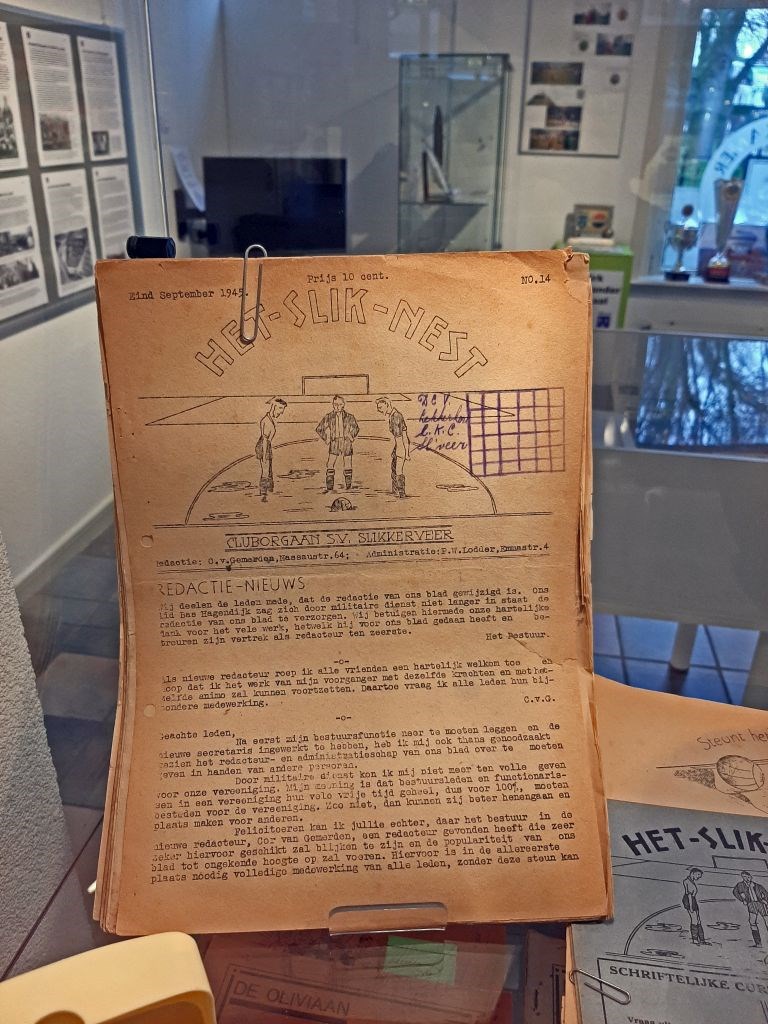 Eind September 1945. Prijs 10 cent. NO.14
HET-SLIK-NEST
D.C.V.
L.K.C.
Sl'veer
CLUBORGAAN S.V. SLIKKERVEER
Redactie: C.v.Gemerden, Nassaustr.64; - Administratie:P.W.Lodder, Emmastr.4
REDACTIE-NIEUWS
Wij deelen de leden mede, dat de redactie van ons blad gewijzigd is. Ons
lid Bas Hagendijk zag zich door militaire dienst niet langer in staat de
redactie van ons blad te verzorgen. Wij betuigen hiermede onze hartelijke
dank voor het vele werk, hetwelk hij voor ons blad gedaan heeft en be-
treuren zijn vertrek als redacteur ten zeerste.
Het Bestuur.
-o-
Als nieuwe redacteur roep ik alle vrienden een hartelijk welkom toe en
hoop dat ik het werk van mijn voorganger met dezelfde krachten en met het-
zelfde animo zal kunnen voortzetten. Daartoe vraag ik alle leden hun bij-
zondere medewerking.
C.v.G.
-o-
Geachte leden,
Na eerst mijn bestuursfunctie neer te moeten leggen en de
nieuwe secretaris ingewerkt te hebben, heb ik mij ook thans genoodzaakt
gezien het redacteur- en administratieschap van ons blad over te moeten
geven in handen van andere personen.
Door militaire dienst kon ik mij niet meer ten volle geven
voor onze vereeniging. Mijn meening is dat bestuursleden en functionaris-
sen in een vereeniging hun vele vrije tijd geheel, dus voor 100%, moeten
besteden voor de vereeniging. Zoo niet, dan kunnen zij beter heengaan en
plaats maken voor anderen.
Feliciteeren kan ik jullie echter, daar het bestuur in de
nieuwe redacteur, Cor van Gemerden, een redacteur gevonden heeft die zeer
zeker hiervoor geschikt zal blijken te zijn en de populariteit van ons
blad tot ongekende hoogte op zal voeren. Hiervoor is in de allereerste
plaats noodig volledige medewerking van alle leden, zonder deze steun kan
Steunt he
HET-SLIK-
SCHRIFTELIJKE CUR
DE OLIVIAAN